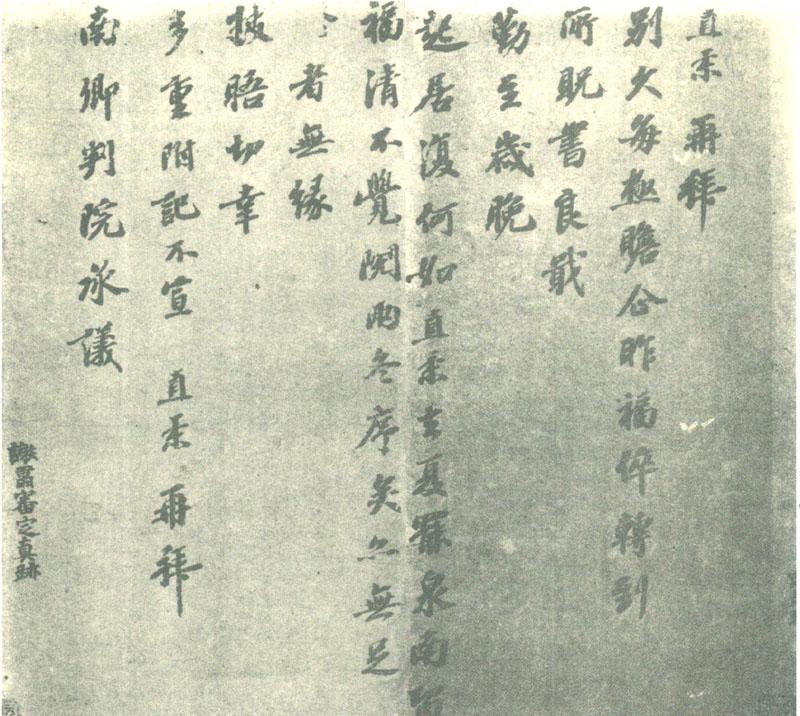 直柔再拜
別久每極瞻企昨福倅轉到
所貺書良戢
勤至歲晚
起居復何如直柔去夏罷泉南
福清不覺閱兩冬序矣亦無足
云者無緣
披晤切幸
多重附記不宣 直柔再拜
南卿判院承議
謝肅審定真跡